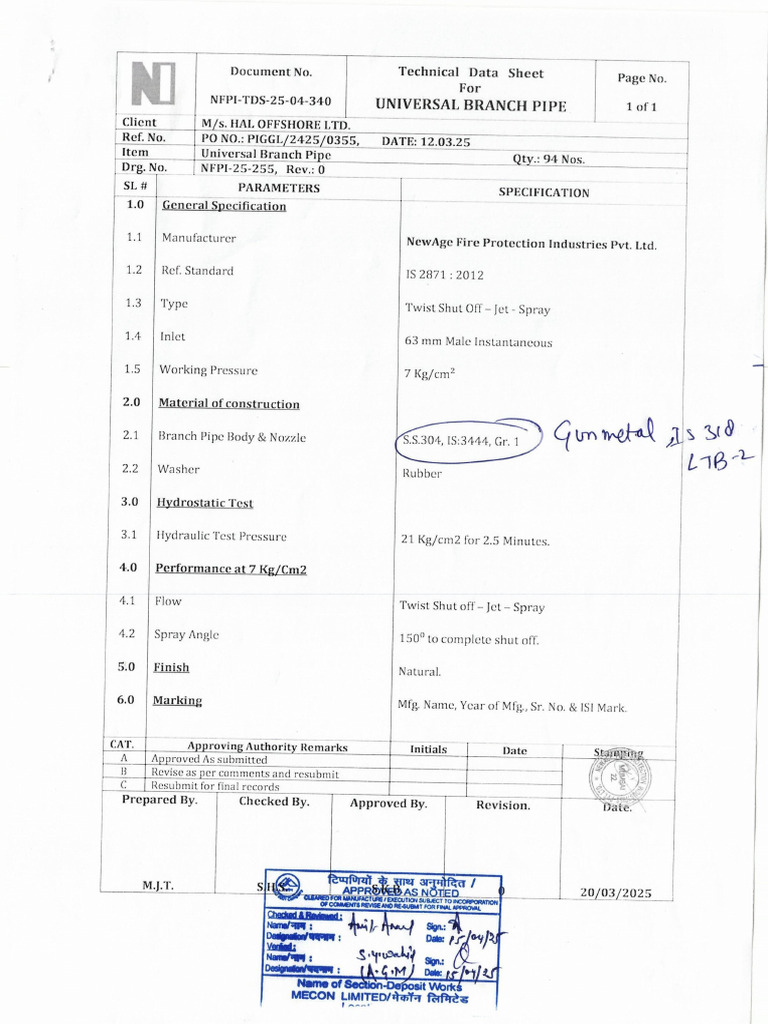 Document No.
NFPI-TDS-25-04-340
Technical Data Sheet
For
UNIVERSAL BRANCH PIPE
Page No.
1 of 1
Client M/s. HAL OFFSHORE LTD.
Ref. No. PO NO.: PIGGL/2425/0355, DATE: 12.03.25
Item Universal Branch Pipe Qty.: 94 Nos.
Drg. No. NFPI-25-255, Rev.: 0
SL # PARAMETERS SPECIFICATION
1.0 General Specification
1.1 Manufacturer NewAge Fire Protection Industries Pvt. Ltd.
1.2 Ref. Standard IS 2871 : 2012
1.3 Type Twist Shut Off – Jet - Spray
1.4 Inlet 63 mm Male Instantaneous
1.5 Working Pressure 7 Kg/cm²
2.0 Material of construction
2.1 Branch Pipe Body & Nozzle S.S.304, IS:3444, Gr. 1 Gunmetal, IS 318
LTB-2
2.2 Washer Rubber
3.0 Hydrostatic Test
3.1 Hydraulic Test Pressure 21 Kg/cm2 for 2.5 Minutes.
4.0 Performance at 7 Kg/Cm2
4.1 Flow Twist Shut off – Jet – Spray
4.2 Spray Angle 150⁰ to complete shut off.
5.0 Finish Natural.
6.0 Marking Mfg. Name, Year of Mfg., Sr. No. & ISI Mark.
CAT. Approving Authority Remarks Initials Date Stamping
A Approved As submitted
B Revise as per comments and resubmit
C Resubmit for final records
Prepared By. Checked By. Approved By. Revision. Date.
M.J.T. S.H.S. S.K.B 0 20/03/2025
टिप्पणियों के साथ अनुमोदित /
APPROVED AS NOTED
CLEARED FOR MANUFACTURE / EXECUTION SUBJECT TO INCORPORATION
OF COMMENTS REVISE AND RE-SUBMIT FOR FINAL APPROVAL
Checked & Reviewed :
Name/नाम : Sign.:
Designation/पदनाम : Date: 15/04/25
Verified :
Name/नाम : Sign.:
Designation/पदनाम : (A.G.M) Date: 15/04/25
Name of Section-Deposit Works
MECON LIMITED/मेकॉन लिमिटेड